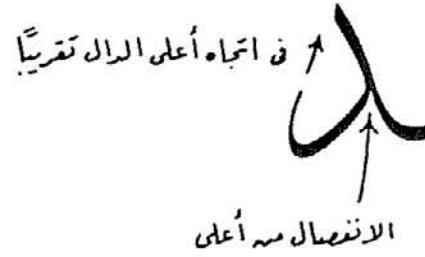 فى اتجاه أعلى الدال تقريبًا
الانفصال من أعلى